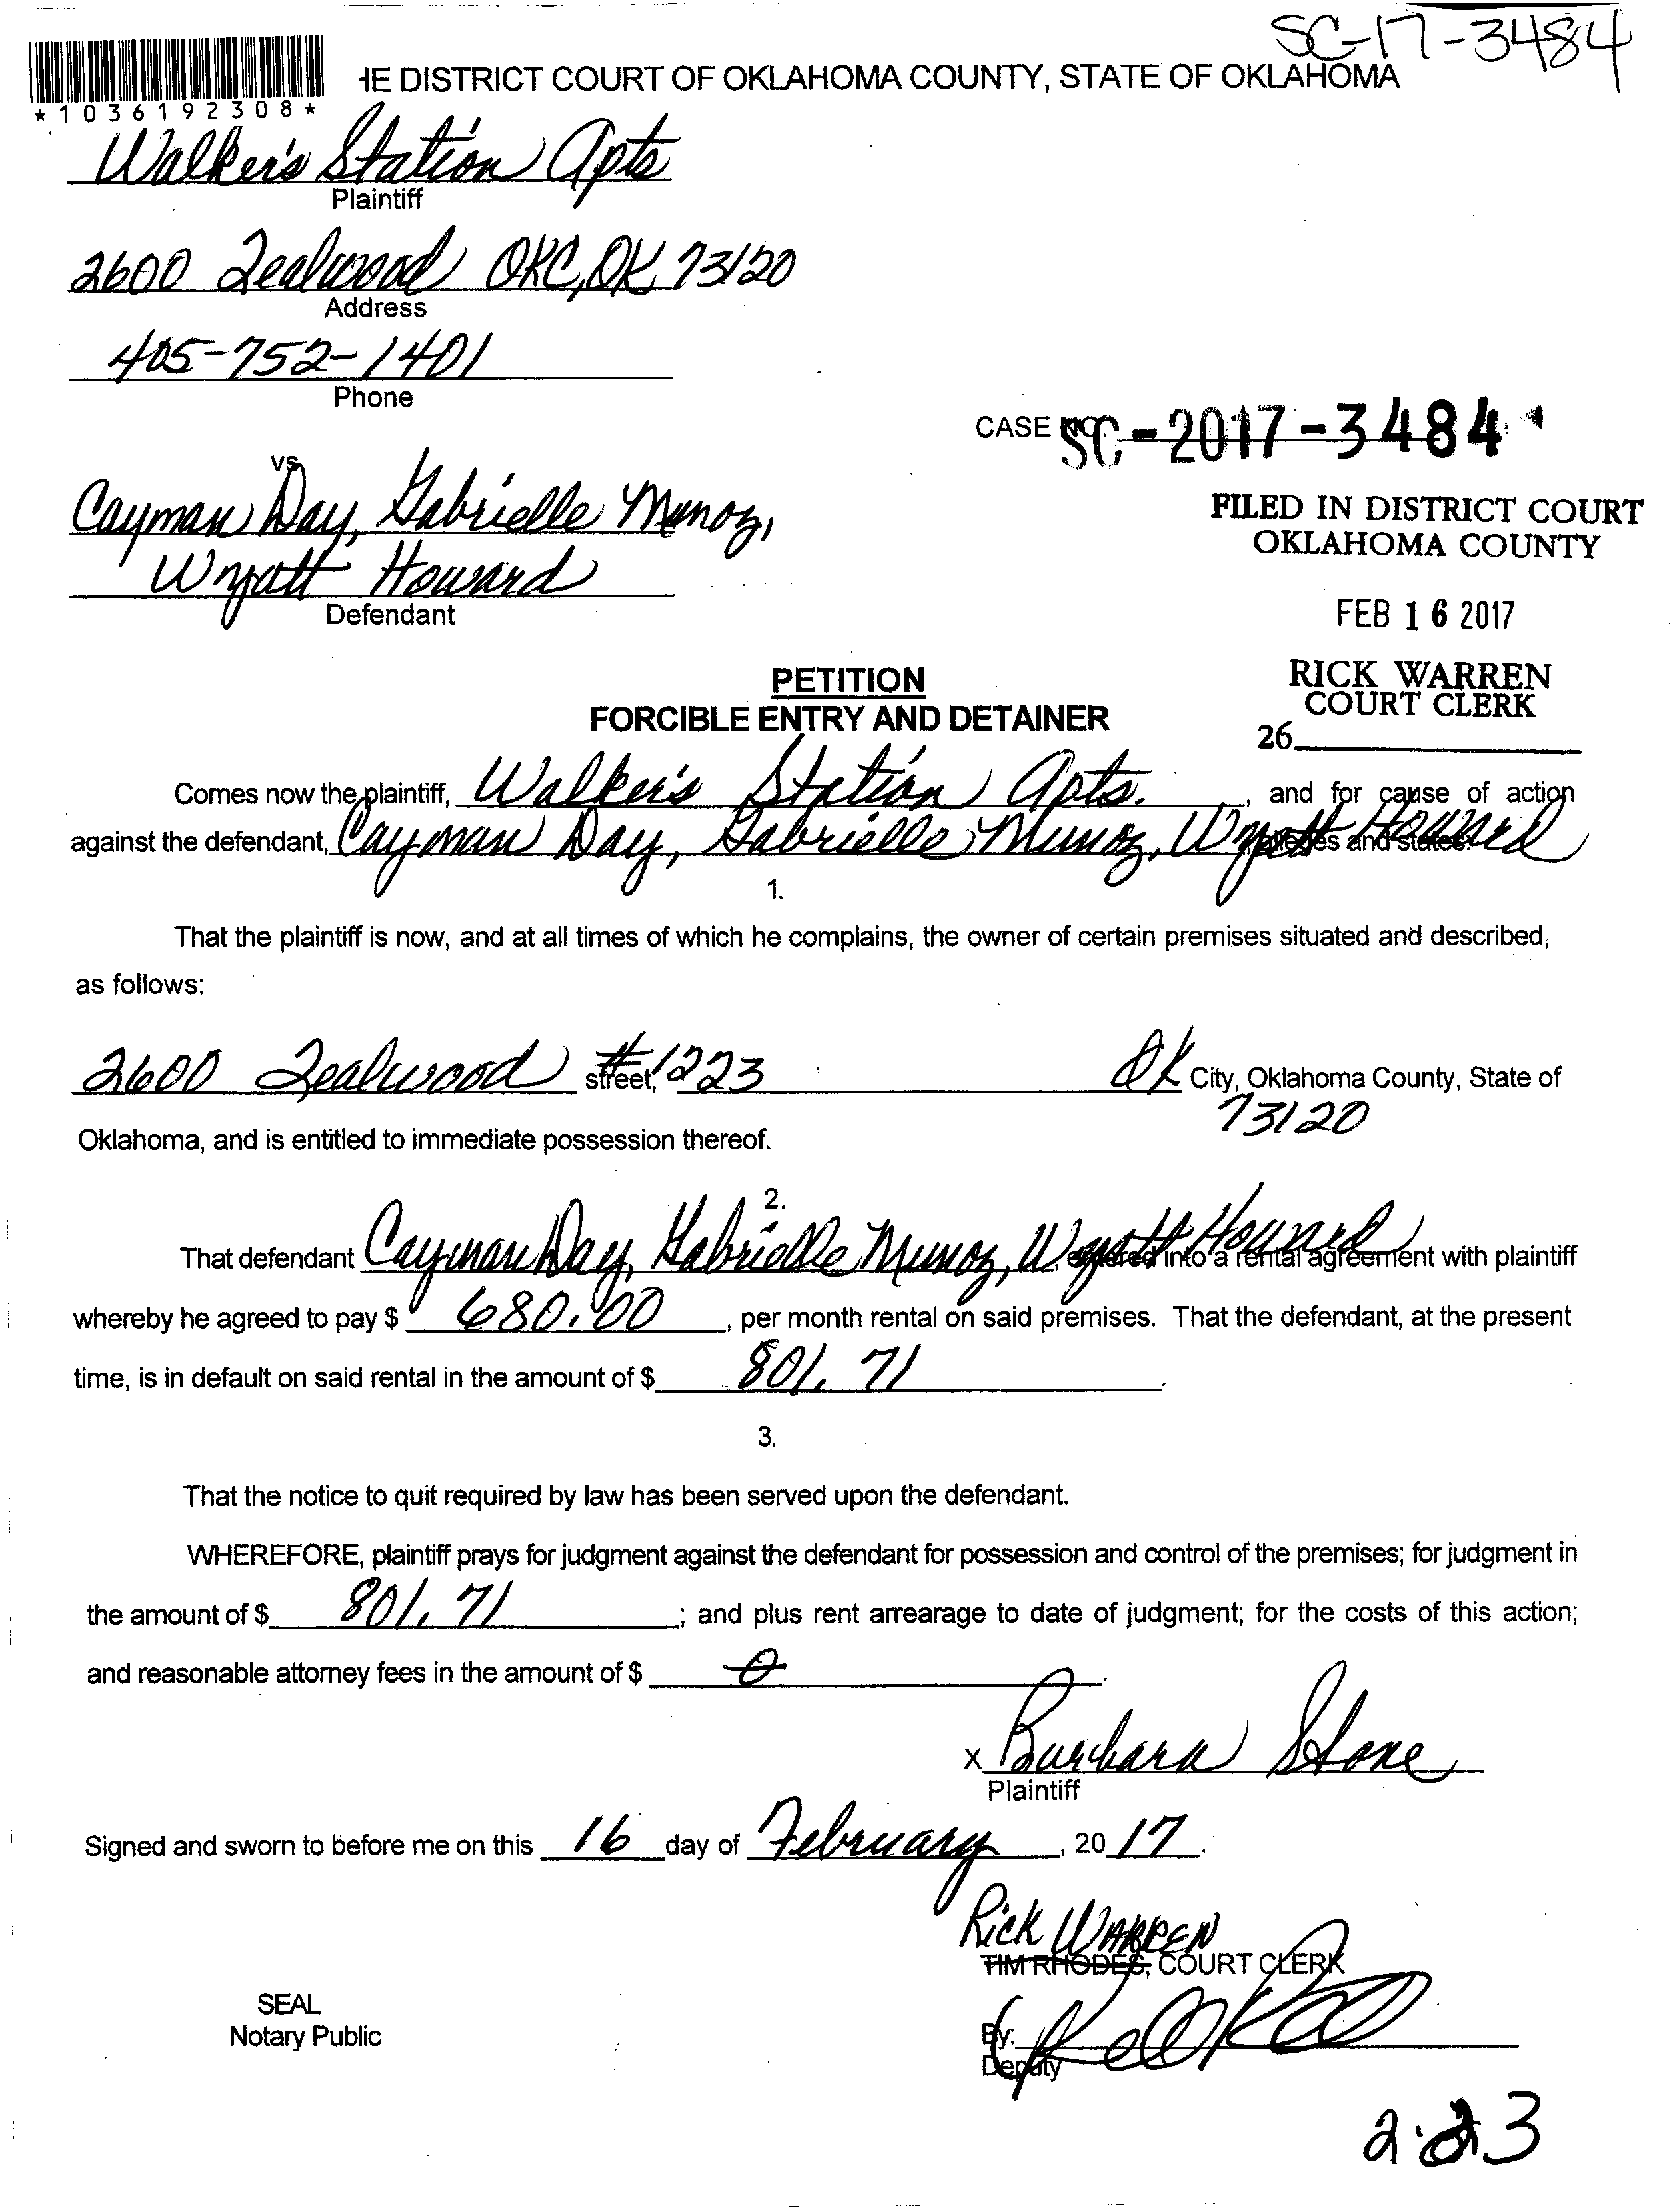 SC-17-3484
IE DISTRICT COURT OF OKLAHOMA COUNTY, STATE OF OKLAHOMA
*1036192308*
Walker's Station Apts
Plaintiff
2600 Tealwood OKC, OK 73120
Address
405-752-1401
Phone
CASE NO. SC-2017-3484
vs
Cayman Day, Gabrielle Munoz,
Wyatt Howard
Defendant
FILED IN DISTRICT COURT
OKLAHOMA COUNTY
FEB 16 2017
RICK WARREN
COURT CLERK
26
PETITION
FORCIBLE ENTRY AND DETAINER
Comes now the plaintiff, Walker's Station Apts. , and for cause of action
against the defendant, Cayman Day, Gabrielle Munoz, Wyatt Howard alleges and states:
1.
That the plaintiff is now, and at all times of which he complains, the owner of certain premises situated and described,
as follows:
2600 Tealwood #1223 street, OK City, Oklahoma County, State of
73120
Oklahoma, and is entitled to immediate possession thereof.
2.
That defendant Cayman Day, Gabrielle Munoz, Wyatt Howard, entered into a rental agreement with plaintiff
whereby he agreed to pay $ 680.00 , per month rental on said premises. That the defendant, at the present
time, is in default on said rental in the amount of $ 801.71 .
3.
That the notice to quit required by law has been served upon the defendant.
WHEREFORE, plaintiff prays for judgment against the defendant for possession and control of the premises; for judgment in
the amount of $ 801.71 ; and plus rent arrearage to date of judgment; for the costs of this action;
and reasonable attorney fees in the amount of $ 0 .
X Barbara Stone
Plaintiff
Signed and sworn to before me on this 16 day of February , 20 17 .
Rick WARREN
TIM RHODES, COURT CLERK
SEAL
Notary Public
By:
Deputy
2.23